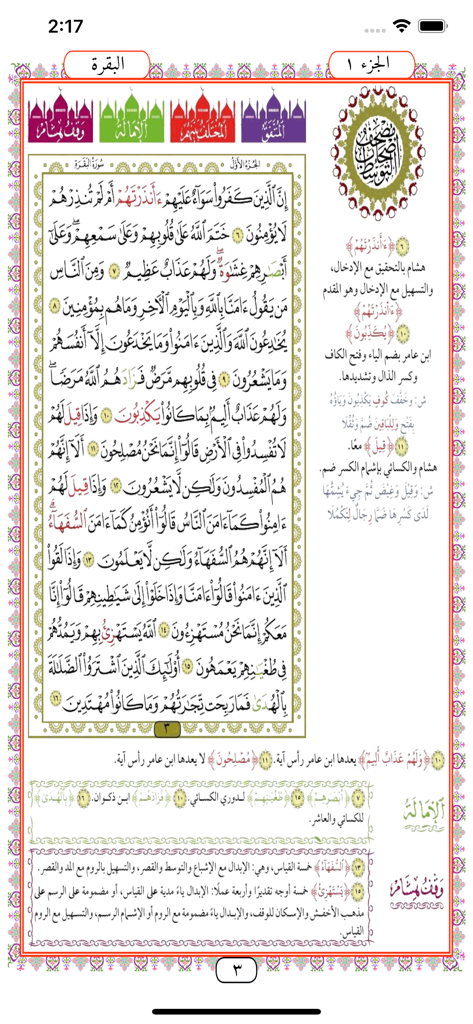 2:17
الجزء ١
البقرة
المتفق
المختلف فيهم
الإمالة
وقف هشام
مصحف أصحاب التوسط
الجزء الأول
سورة البقرة
إِنَّ ٱلَّذِينَ كَفَرُواْ سَوَآءٌ عَلَيْهِمْ ءَأَنذَرْتَهُمْ أَمْ لَمْ تُنذِرْهُمْ
لَا يُؤْمِنُونَ ٦ خَتَمَ ٱللَّهُ عَلَىٰ قُلُوبِهِمْ وَعَلَىٰ سَمْعِهِمْۖ وَعَلَىٰٓ
أَبْصَٰرِهِمْ غِشَٰوَةٌۖ وَلَهُمْ عَذَابٌ عَظِيمٌ ٧ وَمِنَ ٱلنَّاسِ
مَن يَقُولُ ءَامَنَّا بِٱللَّهِ وَبِٱلْيَوْمِ ٱلْأٓخِرِ وَمَا هُم بِمُؤْمِنِينَ ٨
يُخَٰدِعُونَ ٱللَّهَ وَٱلَّذِينَ ءَامَنُواْ وَمَا يَخْدَعُونَ إِلَّآ أَنفُسَهُمْ
وَمَا يَشْعُرُونَ ٩ فِى قُلُوبِهِم مَّرَضٌ فَزَادَهُمُ ٱللَّهُ مَرَضًاۖ
وَلَهُمْ عَذَابٌ أَلِيمٌۢ بِمَا كَانُواْ يَكْذِبُونَ ١٠ وَإِذَا قِيلَ لَهُمْ
لَا تُفْسِدُواْ فِى ٱلْأَرْضِ قَالُوٓاْ إِنَّمَا نَحْنُ مُصْلِحُونَ ١١ أَلَآ إِنَّهُمْ
هُمُ ٱلْمُفْسِدُونَ وَلَٰكِن لَّا يَشْعُرُونَ ١٢ وَإِذَا قِيلَ لَهُمْ
ءَامِنُواْ كَمَآ ءَامَنَ ٱلنَّاسُ قَالُوٓاْ أَنُؤْمِنُ كَمَآ ءَامَنَ ٱلسُّفَهَآءُۗ
أَلَآ إِنَّهُمْ هُمُ ٱلسُّفَهَآءُ وَلَٰكِن لَّا يَعْلَمُونَ ١٣ وَإِذَا لَقُواْ
ٱلَّذِينَ ءَامَنُواْ قَالُوٓاْ ءَامَنَّا وَإِذَا خَلَوْاْ إِلَىٰ شَيَٰطِينِهِمْ قَالُوٓاْ إِنَّا
مَعَكُمْ إِنَّمَا نَحْنُ مُسْتَهْزِءُونَ ١٤ ٱللَّهُ يَسْتَهْزِئُ بِهِمْ وَيَمُدُّهُمْ
فِى طُغْيَٰنِهِمْ يَعْمَهُونَ ١٥ أُوْلَٰٓئِكَ ٱلَّذِينَ ٱشْتَرَوُاْ ٱلضَّلَٰلَةَ
بِٱلْهُدَىٰ فَمَا رَبِحَت تِّجَٰرَتُهُمْ وَمَا كَانُواْ مُهْتَدِينَ ١٦
٣
٦ ﴿ءَأَنذَرْتَهُمْ﴾
هشام بالتحقيق مع الإدخال،
والتسهيل مع الإدخال وهو المقدم
﴿ءَأَنذَرْتَهُمْ﴾
١٠ ﴿يُكَذِّبُونَ﴾
ابن عامر بضم الياء وفتح الكاف
وكسر الذال وتشديدها.
ش: وَخَفَّفَ كُوفٍ يَكْذِبُونَ وَيَاؤُهُ
بِفَتْحٍ وَلِلْبَاقِينَ ضُمَّ وَثُقِّلَا
١١ ﴿قِيلَ﴾ معًا.
هشام والكسائي بإشمام الكسر ضم.
ش: وَقِيلَ وَغِيضَ ثُمَّ جِيءَ يُشِمُّهَا
لَدَى كَسْرِهَا ضَمًّا رِجَالٌ لِتَكْمُلَا
١٠ ﴿وَلَهُمْ عَذَابٌ أَلِيمٌ﴾ يعدها ابن عامر رأس آية. ١١ ﴿مُصْلِحُونَ﴾ لا يعدها ابن عامر رأس آية.
الإمالة
٧ ﴿أَبْصَٰرِهِمْ﴾ ١٥ ﴿طُغْيَٰنِهِمْ﴾ لدوري الكسائي. ١٠ ﴿فَزَادَهُمُ﴾ ابن ذكوان. ١٦ ﴿بِٱلْهُدَىٰ﴾
للكسائي والعاشر.
وقف هشام
١٣ ﴿ٱلسُّفَهَآءُ﴾ خمسة القياس، وهي: الإبدال مع الإشباع والتوسط والقصر، والتسهيل بالروم مع المد والقصر.
١٥ ﴿يَسْتَهْزِئُ﴾ خمسة أوجه تقديرًا وأربعة عملًا: الإبدال ياءً مدية على القياس، أو مضمومة على الرسم على
مذهب الأخفش والإسكان للوقف، والإبدال ياءً مضمومة مع الروم أو الإشمام الرسم، والتسهيل مع الروم
القياس.
٣